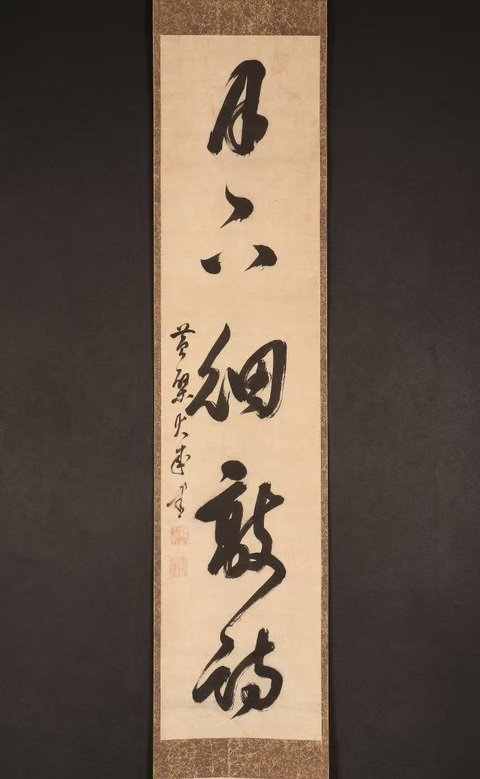 月下細敲詩
黄檗大成書